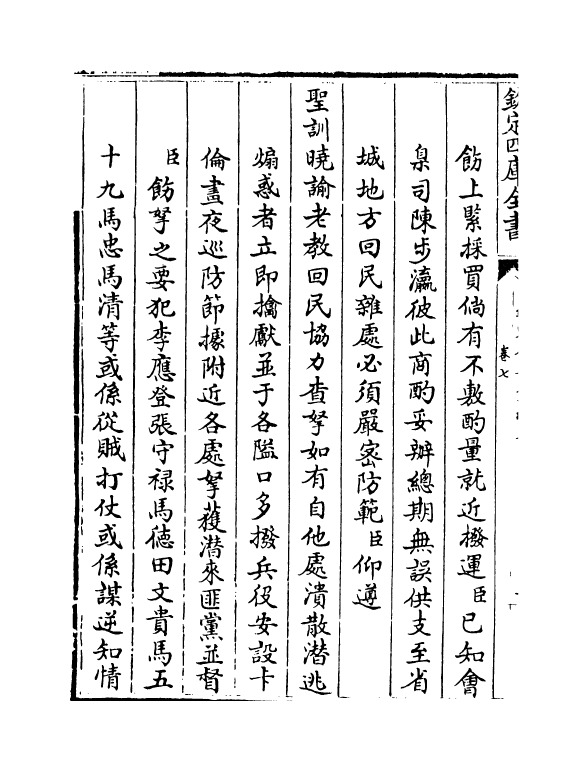 欽定四庫全書
卷七
飭上緊採買倘有不敷酌量就近撥運臣已知會
臬司陳步瀛彼此商酌妥辦總期無誤供支至省
城地方回民雜處必須嚴密防範臣仰遵
聖訓曉諭老教回民協力查拏如有自他處潰散潛逃
煽惑者立即擒獻並于各隘口多撥兵役安設卡
倫晝夜巡防節據附近各處拏獲潛來匪黨並督
臣飭拏之要犯李應登張守祿馬德田文貴馬五
十九馬忠馬清等或係從賊打仗或係謀逆知情